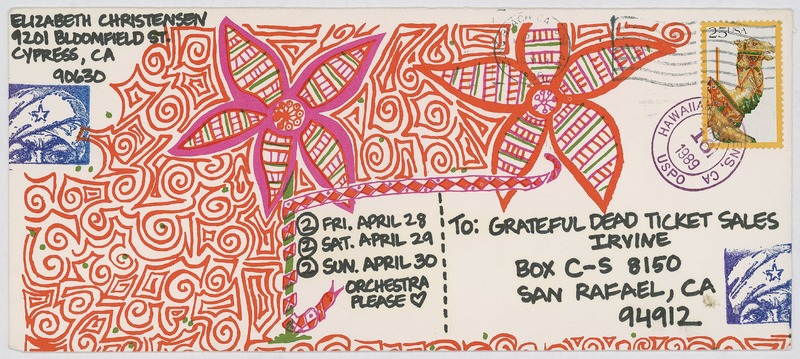 ELIZABETH CHRISTENSEN
9201 BLOOMFIELD ST.
CYPRESS, CA
90630
25 USA
HAWAIIAN
1989
USPO
CA
② FRI. APRIL 28
② SAT. APRIL 29
② SUN. APRIL 30
ORCHESTRA
PLEASE ♡
TO: GRATEFUL DEAD TICKET SALES
IRVINE
BOX C-S 8150
SAN RAFAEL, CA
94912